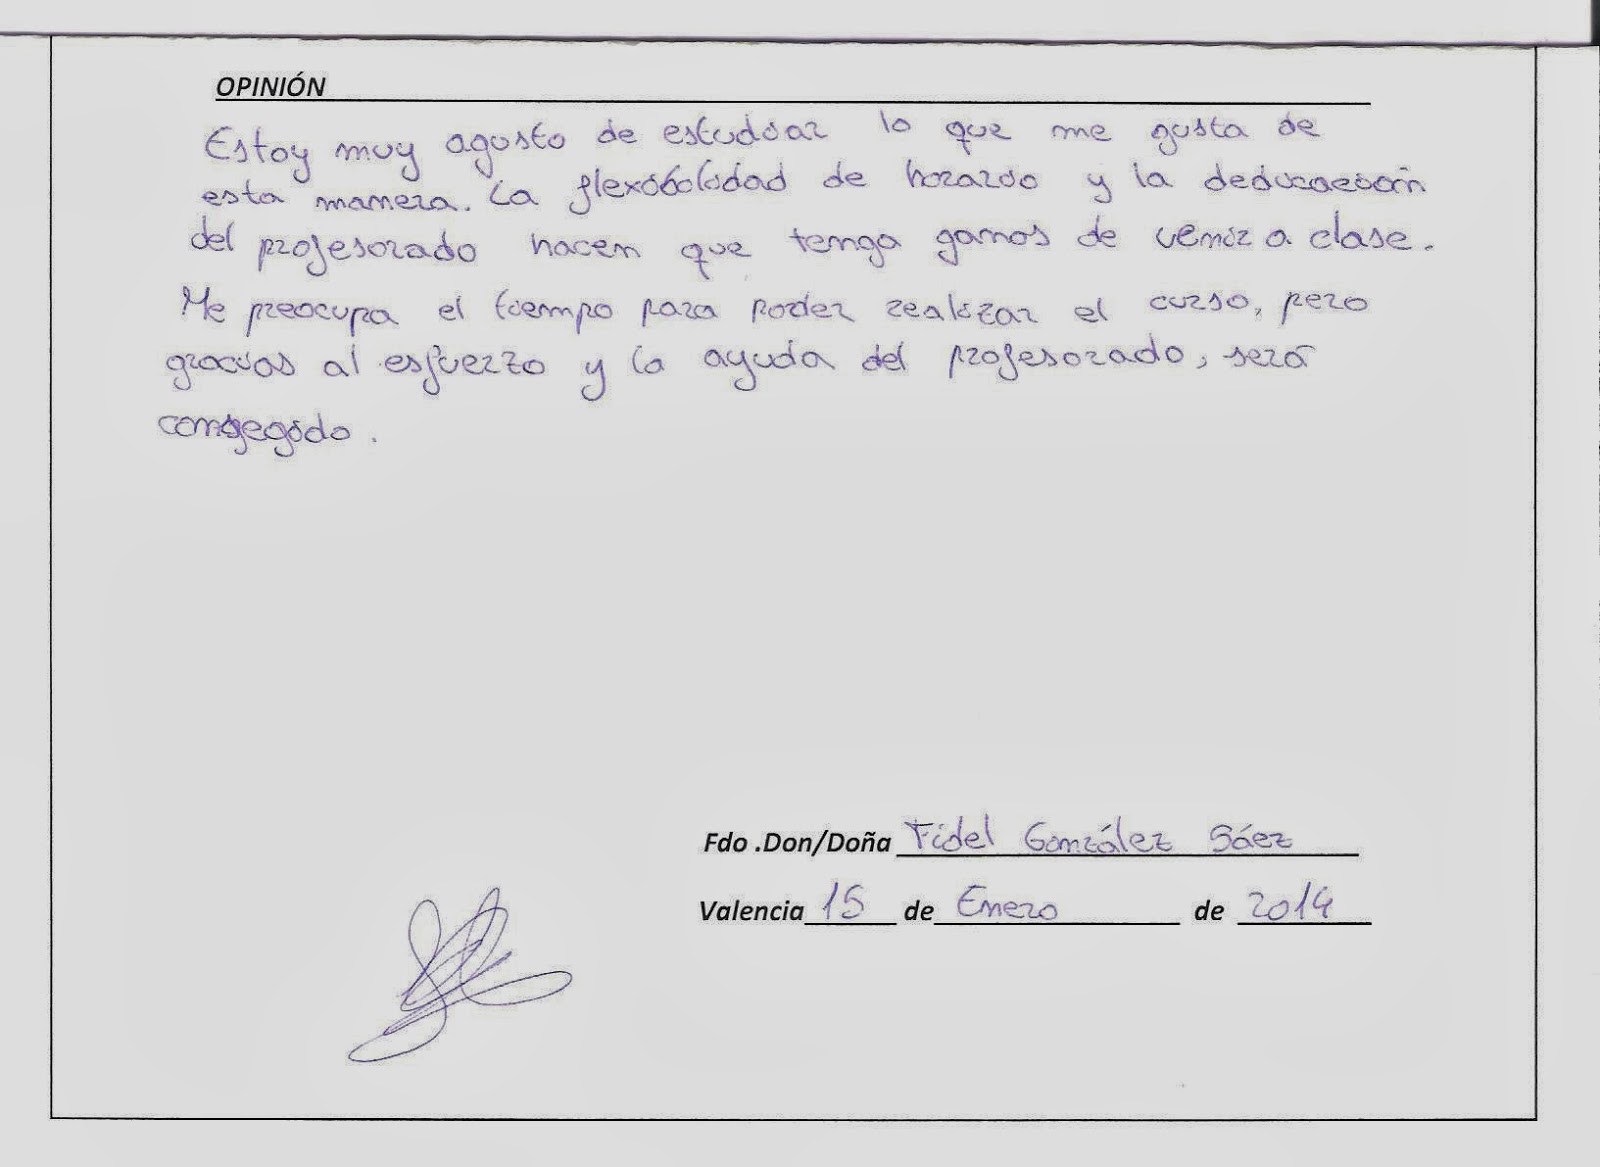 OPINIÓN
Estoy muy agusto de estudiar lo que me gusta de
esta manera. La flexibilidad de horario y la
del profesorado hacen que tenga ganas de venir a clase.
Me preocupa el tiempo para poder realizar el curso, pero
gracias al esfuerzo y la ayuda del profesorado, será
conseguido.
Fdo .Don/Doña Fidel González Sáez
Valencia 15 de Enero de 2014